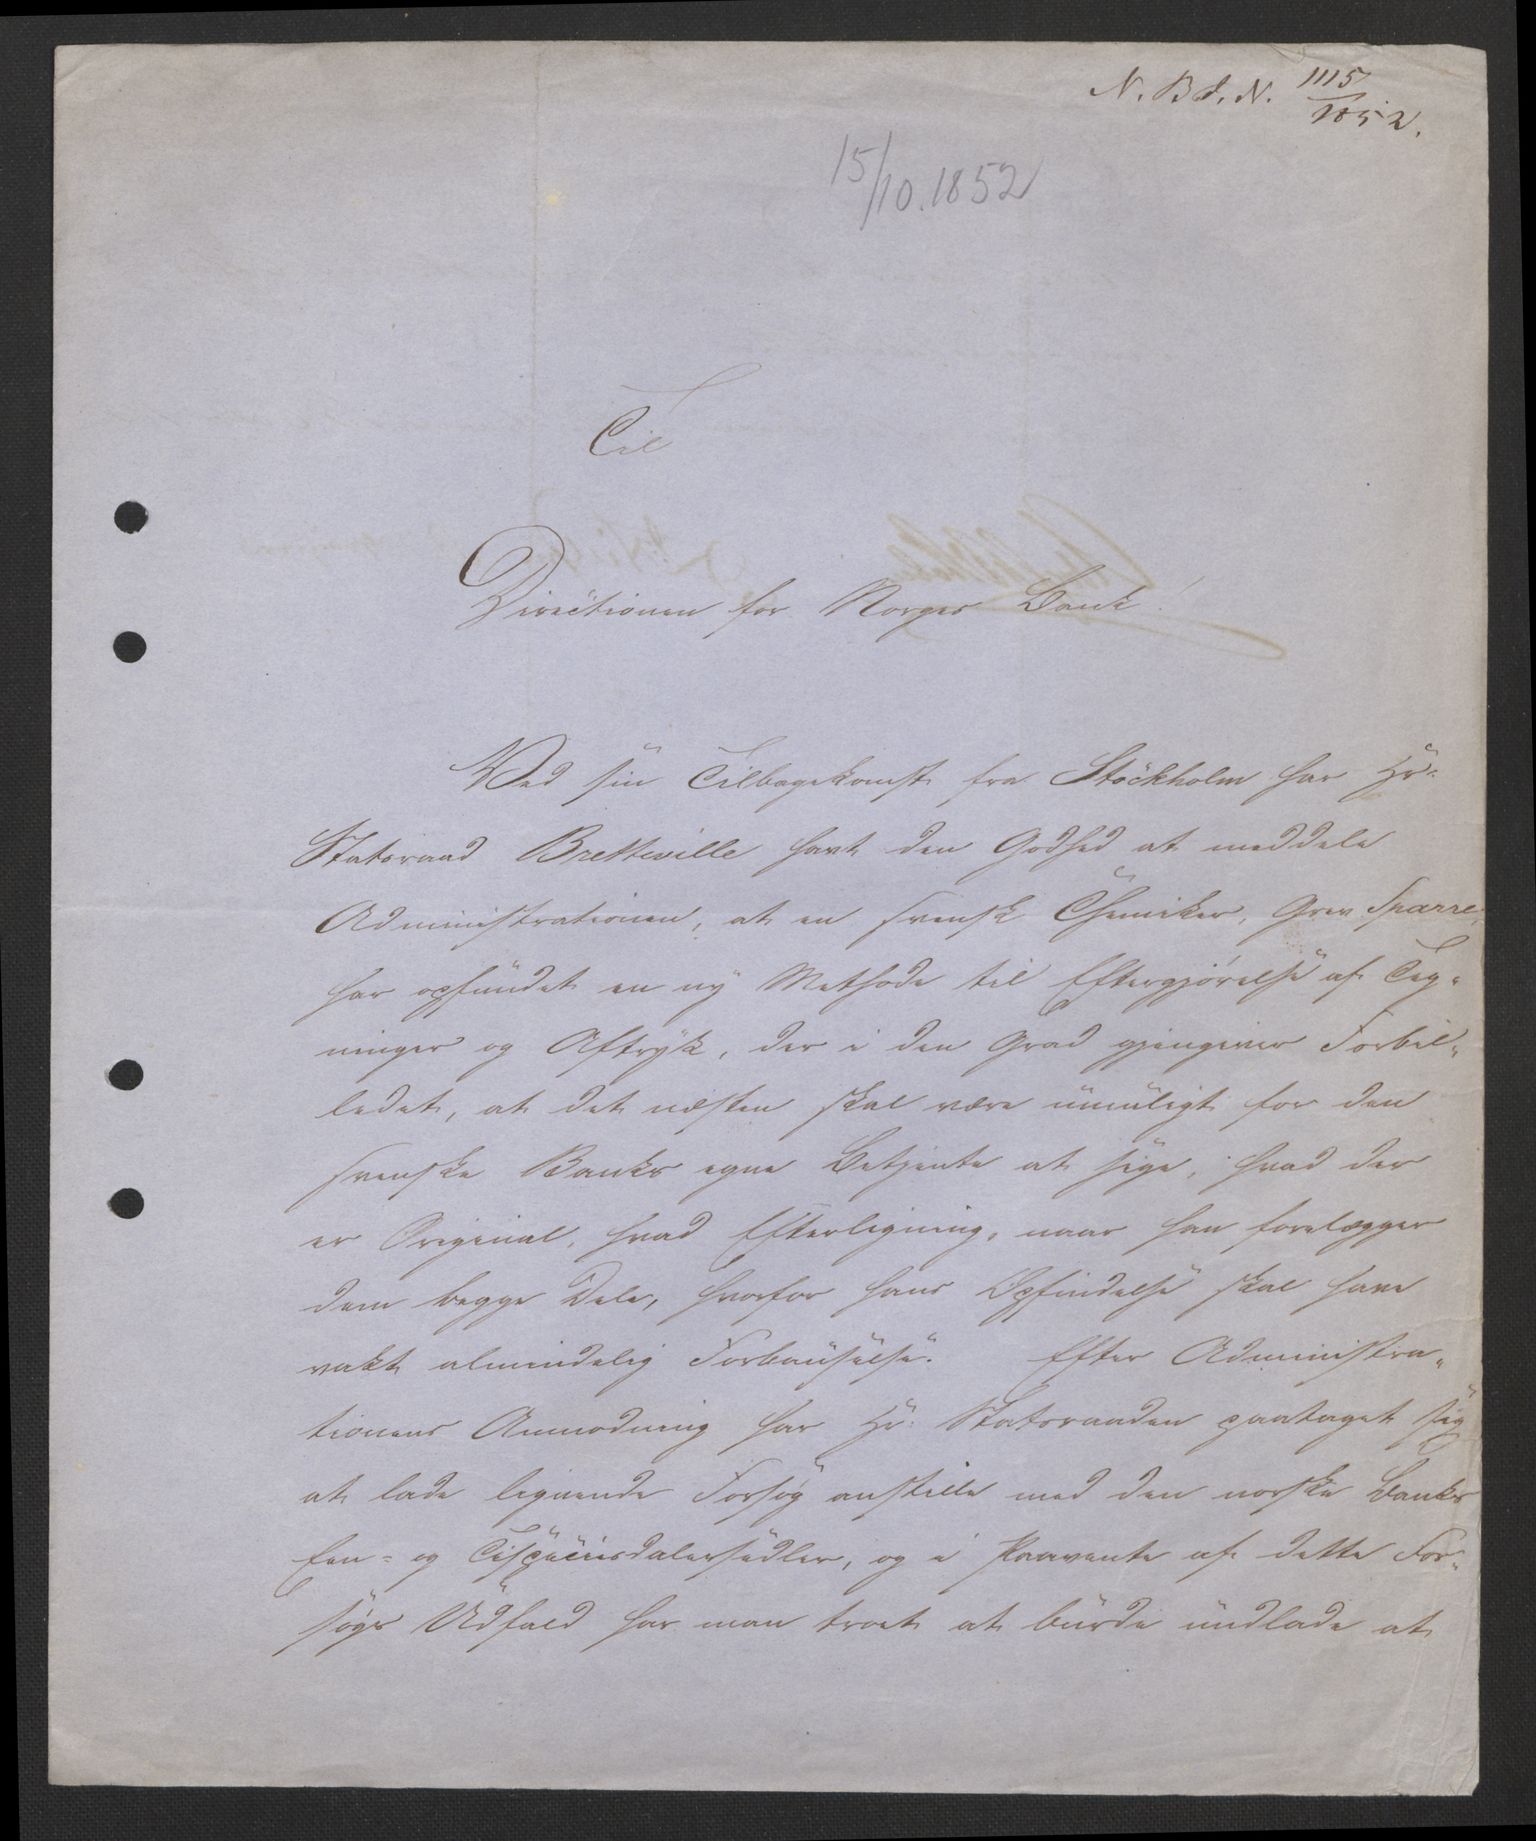 N. B. J. N. 1115/1852.
15/10.1852
Til
Directionen for Norges Bank!
Ved sin Tilbagekomst fra Stockholm har Hr.
Statsraad Bretteville havt den Godhed at meddele
Administrationen, at en svensk Chemiker, Grev Sparre,
har opfundet en ny Methode til Eftergjørelse af Teg-
ninger og Aftryk, der i den Grad gjengiver Forbil-
ledet, at det næsten skal være umuligt for den
svenske Banks egne Betjente at sige, hvad der
er Original, hvad Efterligning, naar han forelægger
dem begge Dele, hvorfor hans Opfindelse skal have
vakt almindelig Forbauselse. Efter Administra-
tionens Anmodning har Hr. Statsraaden paataget sig
at lade lignende Forsøg anstille med den norske Banks
Een- og Tispeciesdalersedler, og i Paavente af dette For-
søgs Udfald har man troet at burde undlade at